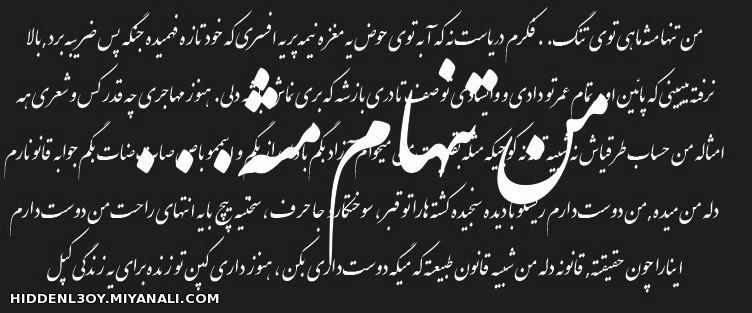 من تنها مثه ماهی توی تنگ.. فکرم دریاست نه که آبه توی حوض یه مغزه نیمه پر یه افسری که خود تازه فهمیده جنگه پس ضریبه برد, بالا
نرفته میبینی که پائین اومد تمام عمر تو دادی و وایسادی تو صف تا دری باز شه که بری دلی. هنوز مهاجری چه قدر کس و شعری هه
امثاله من حساب طرفیاش نه شبیه که مثله میخوام آزاد بگم بگم و اسممو با ضات بگم جوابه قانونا رم
دله من میده, من دوست دارم ریسکو با دیده سنجیده کشته ها را تو قبر, سوختگا رو جا حرف, سختیه پیچ با یه انتهای راحت من دوست دارم
اینارا چون حقیقته, قانونه دله من شبیه قانون طبیعته که میگه دوست داری بکن, هنوز داری کپن تو زنده برای یه زندگی کپل
من تنهام مثه...
HIDDENL3OY.MIYANALI.COM